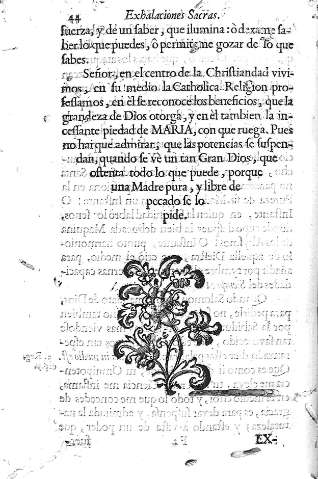 44 Exhalaciones Sacras.
fuerza, y de un saber, que ilumina: ò dexame sa-
ber lo que puedes, ò permiteme gozar de lo que
sabes.
Señor, en el centro de la Christiandad vivi-
mos, en su medio la Catholica Religion pro-
fessamos, en èl se reconoce los beneficios, que la
grandeza de Dios otorga, y en èl tambien la in-
cessante piedad de MARIA, con que ruega. Pues
no hai que admirar; que las potencias se suspen-
dan, quando se vè un tan Gran Dios, que
ostenta todo lo que puede, porque
una Madre pura, y libre de
pecado se lo
pide.
EX-